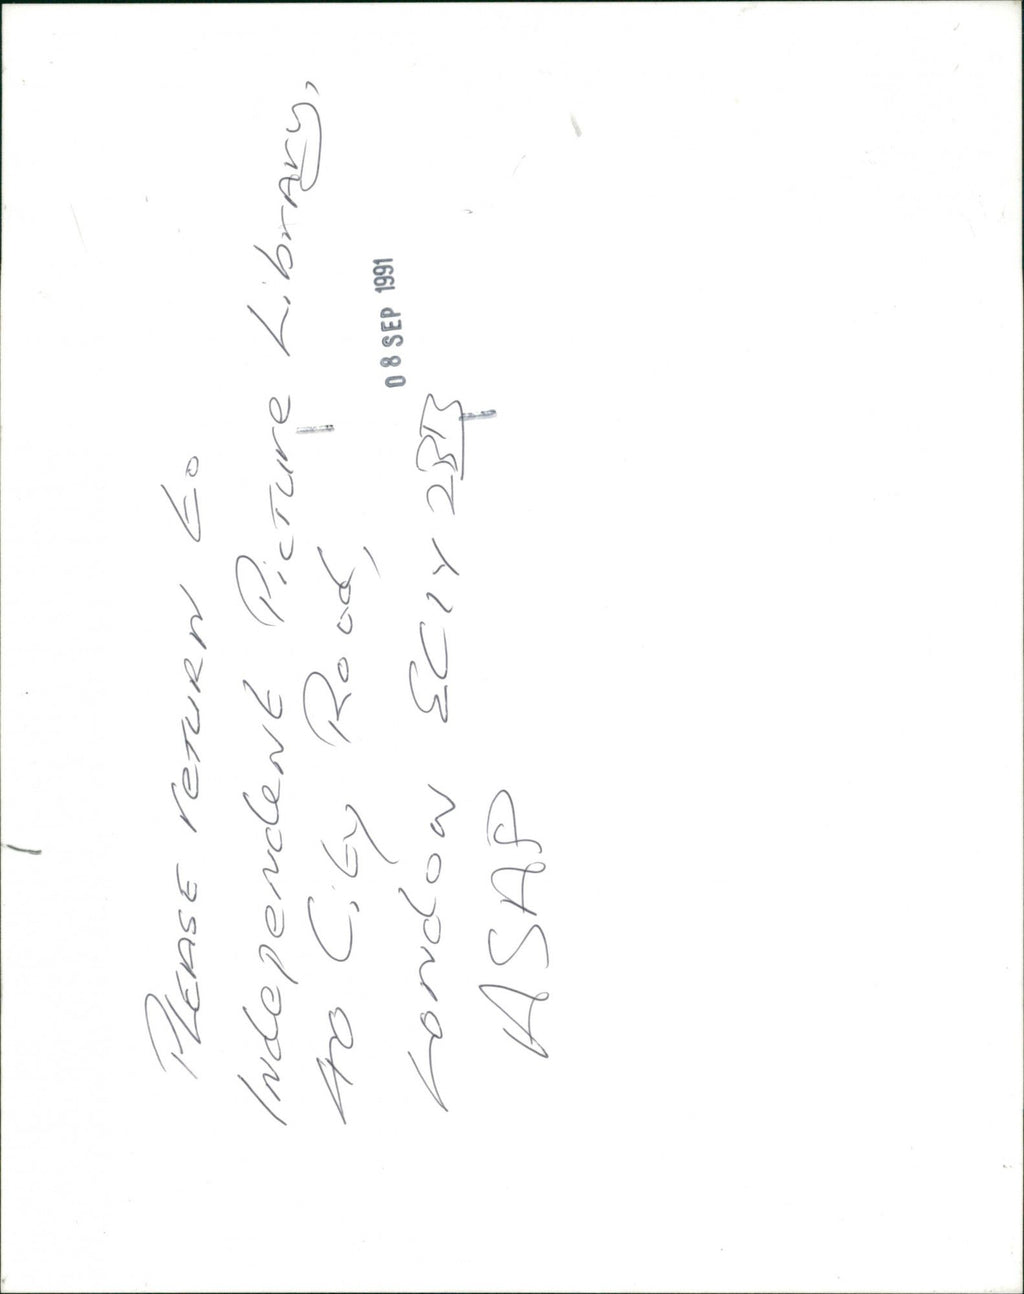 Please return to
Independent Picture Library,
40 City Road,
London EC1Y 2DB
ASAP
08 SEP 1991